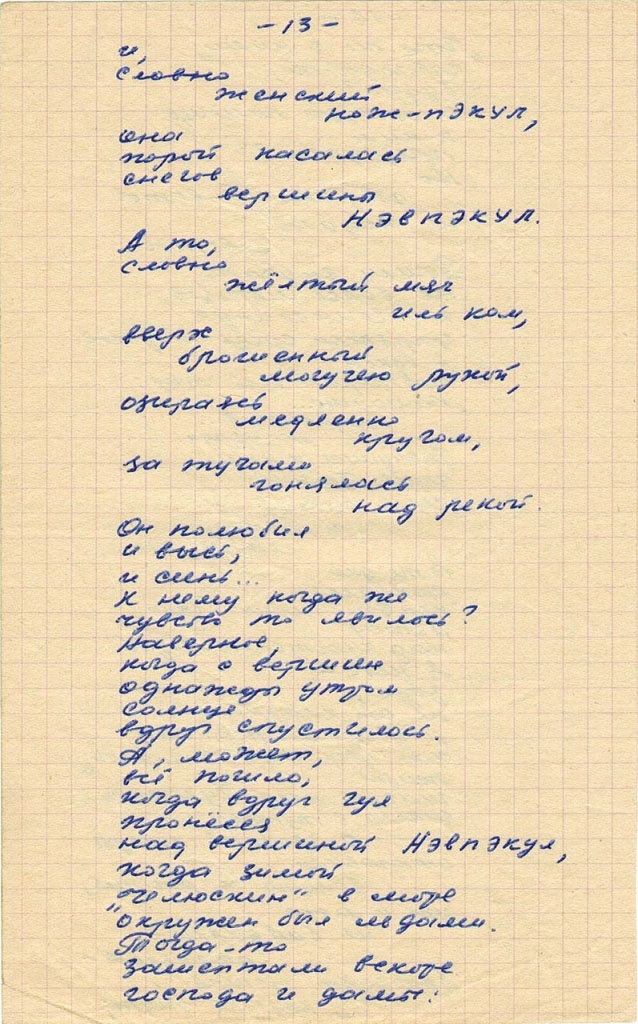 - 13 -
и,
словно
женский
нож-пэкул,
она
порой касалась
снегов
вершины
Нэвпэкул.
А то,
словно
жёлтый мяч
иль ком,
вверх
брошенный
могучею рукой,
озираясь
медленно
кругом,
за тучами
гонялась
над рекой.
Он полюбил
и высь,
и синь...
К нему когда же
чувство то явилось?
Наверное,
когда с вершин
однажды утром
солнце
вдруг спустилось.
А, может,
всё пошло,
когда вдруг гул
пронёсся
над вершиной Нэвпэкул,
когда зимой
"Челюскин" в море
окружен был льдами.
Тогда-то
зашептали вскоре
господа и дамы: